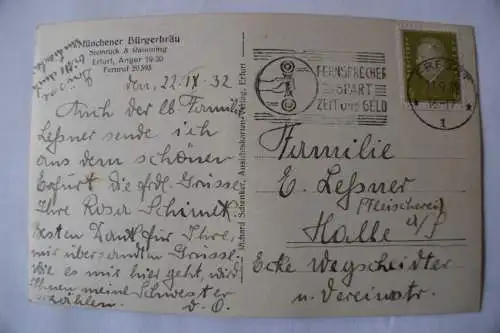 Münchener Bürgerbräu
Steinrück & Ramming
Erfurt, Anger 19-20
Fernruf 20593
22.IX.32
Auch der lb Familie
Leßner sende ich
aus dem schönen
Erfurt die frdl. Grüsse
Ihre Rosa Schimek.
Besten Dank für Ihre,
mir übersandten Grüsse.
Wie es mir hier geht, wird
Ihnen meine Schwester
erzählen. D. O.
Richard Schenker, Ansichtskarten-Verlag, Erfurt
FERNSPRECHER
SPART
ZEIT UND GELD
1
Familie
E. Leßner
Fleischerei
Halle a/S
Ecke Wegscheidter
u. Vereinsstr.